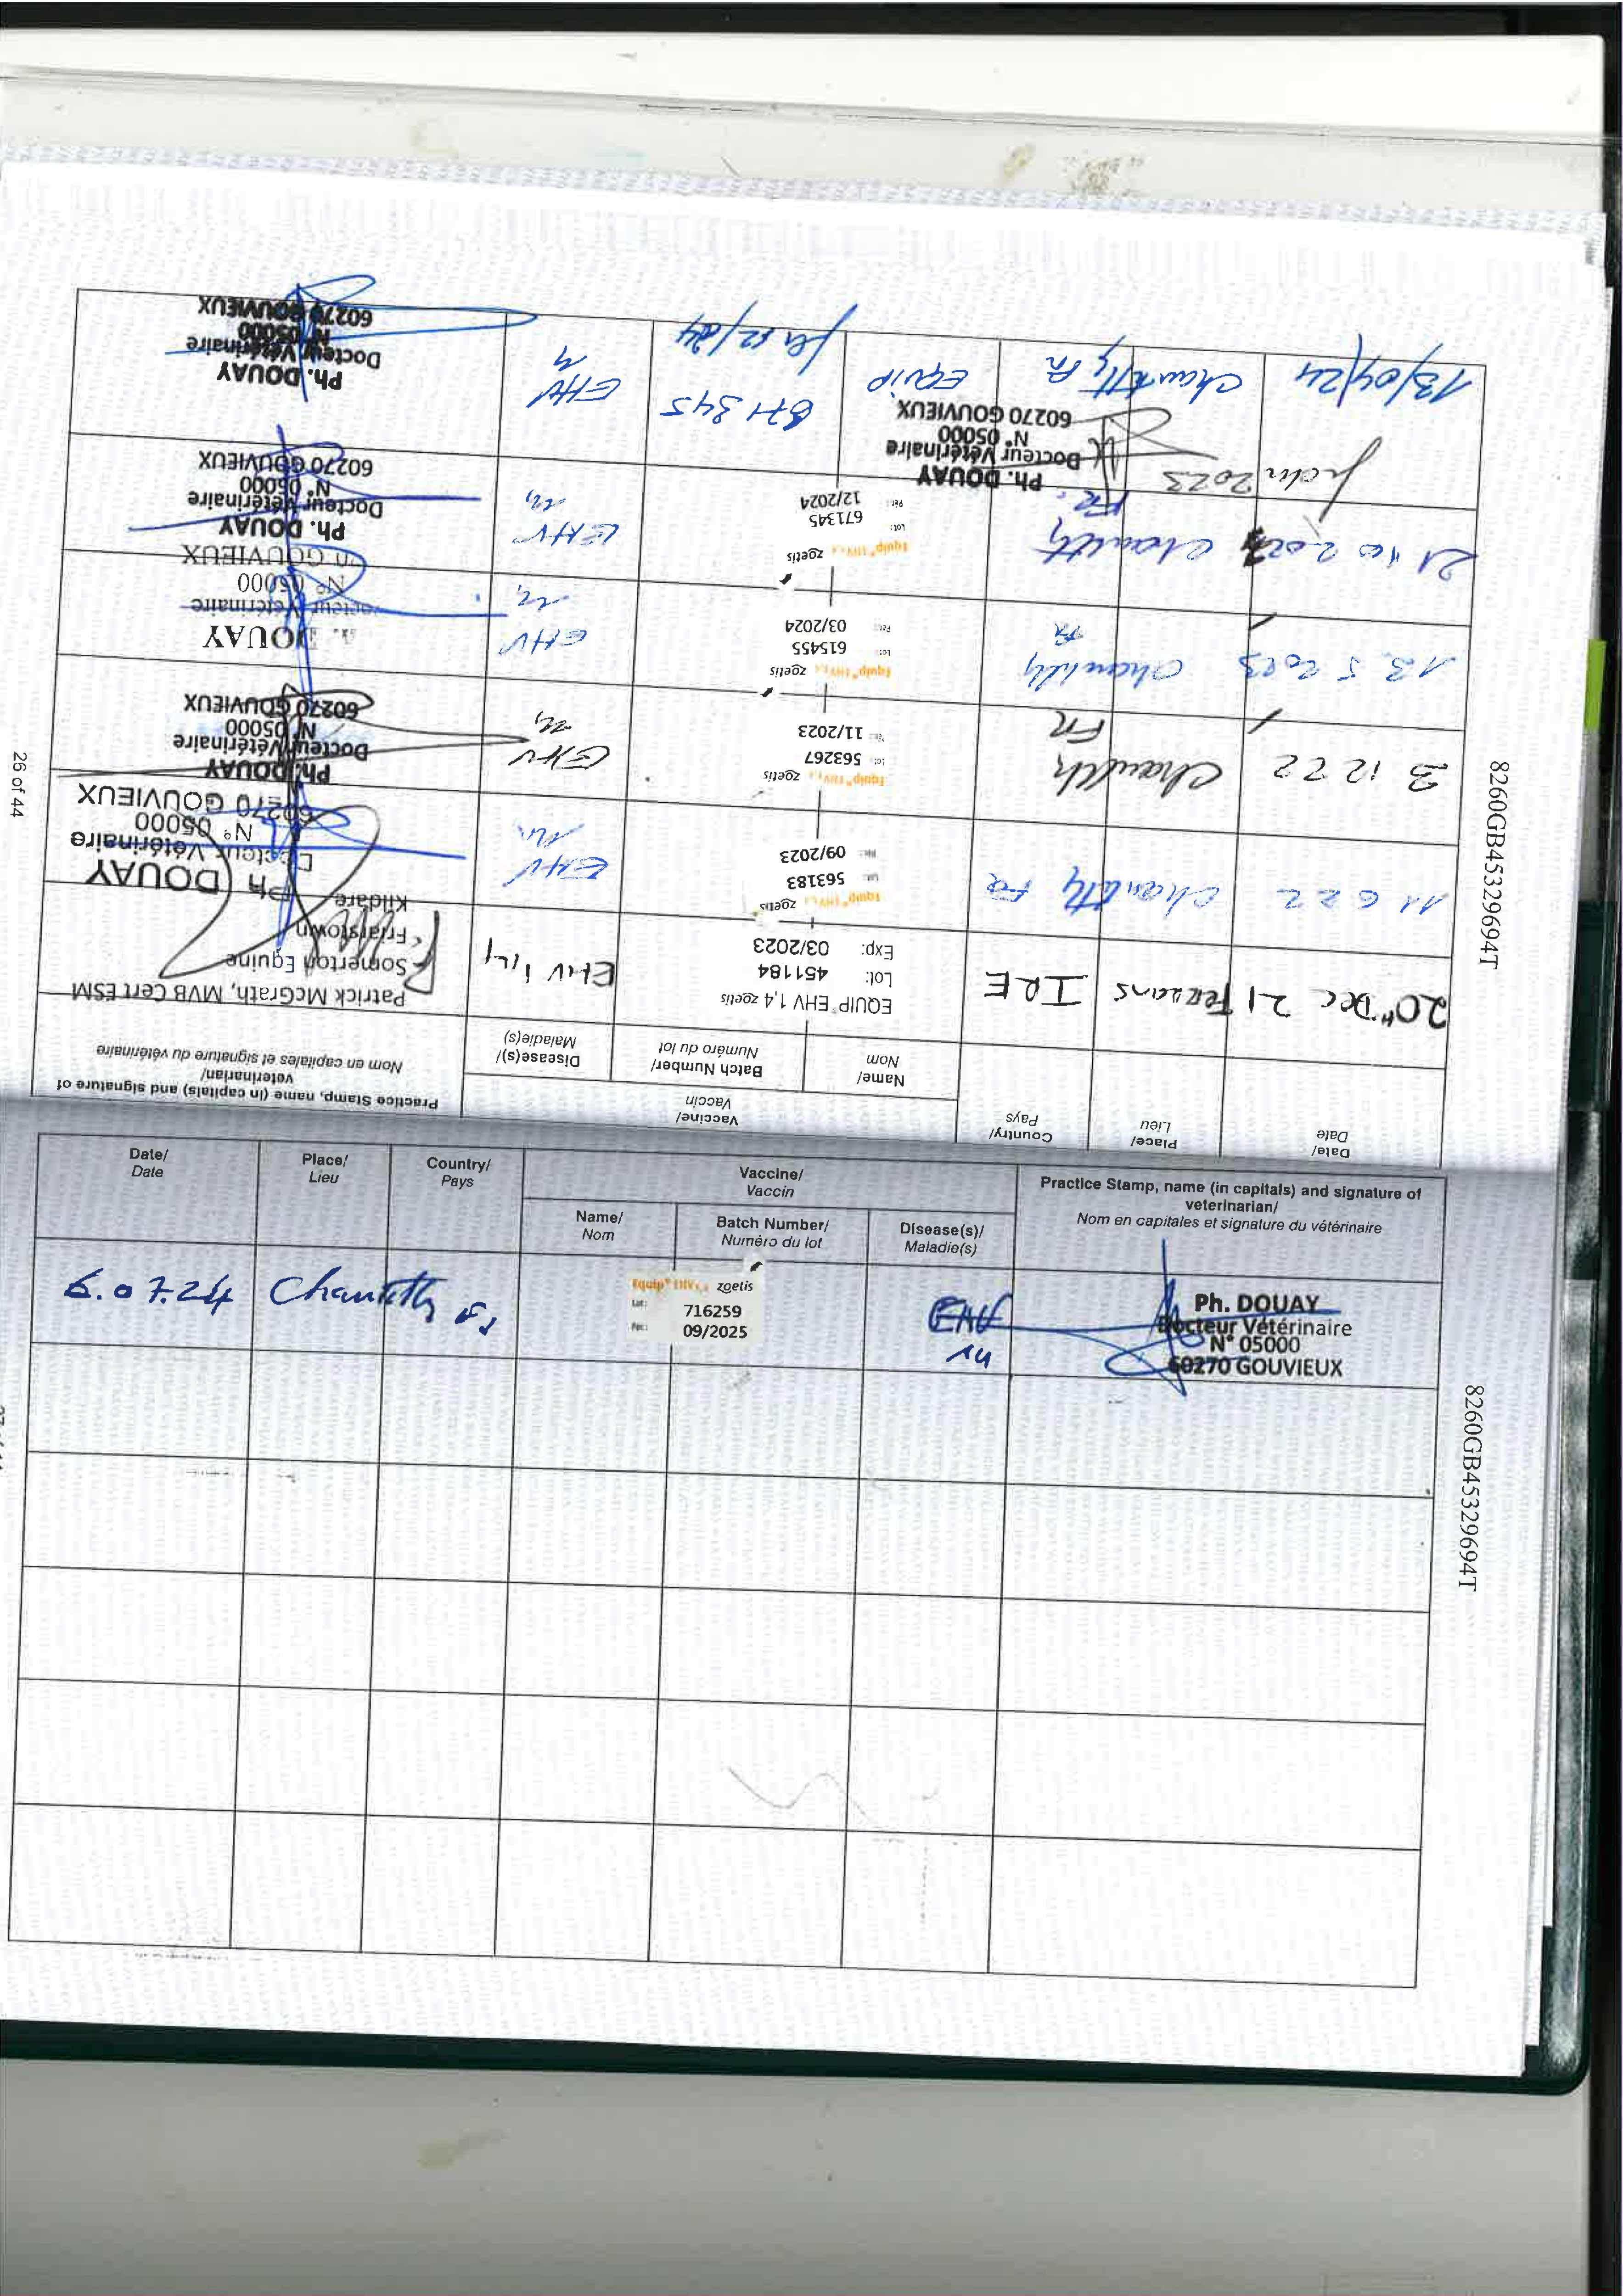 Date/
Date
Place/
Lieu
Country/
Pays
Vaccine/
Vaccin
Name/
Nom
Batch Number/
Numéro du lot
Disease(s)/
Maladie(s)
Practice Stamp, name (in capitals) and signature of
veterinarian/
Nom en capitales et signature du vétérinaire
20th Dec 21
IRE
EQUIP® EHV 1,4 zoetis
Lot: 451184
Exp: 03/2023
EHV 1,4
Patrick McGrath, MVB Cert ESM
Somerton Equine
Friarstown
Kildare
11 6 22
Chantilly
FR
Equip® EHV1,4 zoetis
Lot: 563183
09/2023
EHV
1,4
Ph. DOUAY
Docteur Vétérinaire
N° 05000
60270 GOUVIEUX
3 12 22
Chantilly
FR
Equip® EHV1,4 zoetis
Lot: 563267
11/2023
EHV
1,4
Ph. DOUAY
Docteur Vétérinaire
N° 05000
60270 GOUVIEUX
13 5 2023
Chantilly
FR
Equip® EHV1,4 zoetis
Lot: 615455
Per: 03/2024
EHV
1,4
Ph. DOUAY
Docteur Vétérinaire
N° 05000
60270 GOUVIEUX
21 10 2023
Chantilly
FR.
Equip® EHV1,4 zoetis
Lot: 671345
Per: 12/2024
EHV
1,4
Ph. DOUAY
Docteur Vétérinaire
N° 05000
60270 GOUVIEUX
2023
Ph. DOUAY
Docteur Vétérinaire
N° 05000
60270 GOUVIEUX
13/04/24
Chantilly
FR
EQUIP
671345
12/24
EHV
Ph. DOUAY
Docteur Vétérinaire
N° 05000
60270 GOUVIEUX
8260GB45329694T
26 of 44
Date/
Date
Place/
Lieu
Country/
Pays
Vaccine/
Vaccin
Name/
Nom
Batch Number/
Numéro du lot
Disease(s)/
Maladie(s)
Practice Stamp, name (in capitals) and signature of
veterinarian/
Nom en capitales et signature du vétérinaire
6.07.24
Chantilly
Equip® EHV1,4 zoetis
Lot: 716259
Per: 09/2025
EHV
1,4
Ph. DOUAY
Docteur Vétérinaire
N° 05000
60270 GOUVIEUX
8260GB45329694T